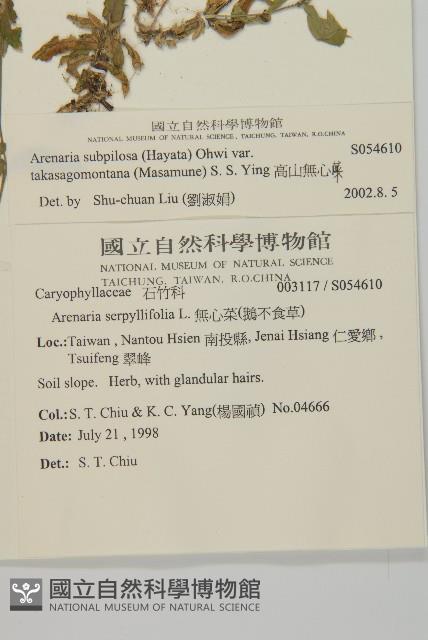 國立自然科學博物館
NATIONAL MUSEUM OF NATURAL SCIENCE, TAICHUNG, TAIWAN, R.O.CHINA
Arenaria subpilosa (Hayata) Ohwi var. S054610
takasagomontana (Masamune) S. S. Ying 高山無心
Det. by Shu-chuan Liu (劉淑娟) 2002.8.5
國立自然科學博物館
NATIONAL MUSEUM OF NATURAL SCIENCE
TAICHUNG, TAIWAN, R.O.CHINA
Caryophyllaccae 石竹科 003117 / S054610
Arenaria serpyllifolia L. 無心菜(鵝不食草)
Loc.:Taiwan , Nantou Hsien 南投縣, Jenai Hsiang 仁愛鄉 ,
Tsuifeng 翠峰
Soil slope. Herb, with glandular hairs.
Col.:S. T. Chiu & K. C. Yang(楊國禎) No.04666
Date: July 21 , 1998
Det.: S. T. Chiu
國立自然科學博物館
NATIONAL MUSEUM OF NATURAL SCIENCE